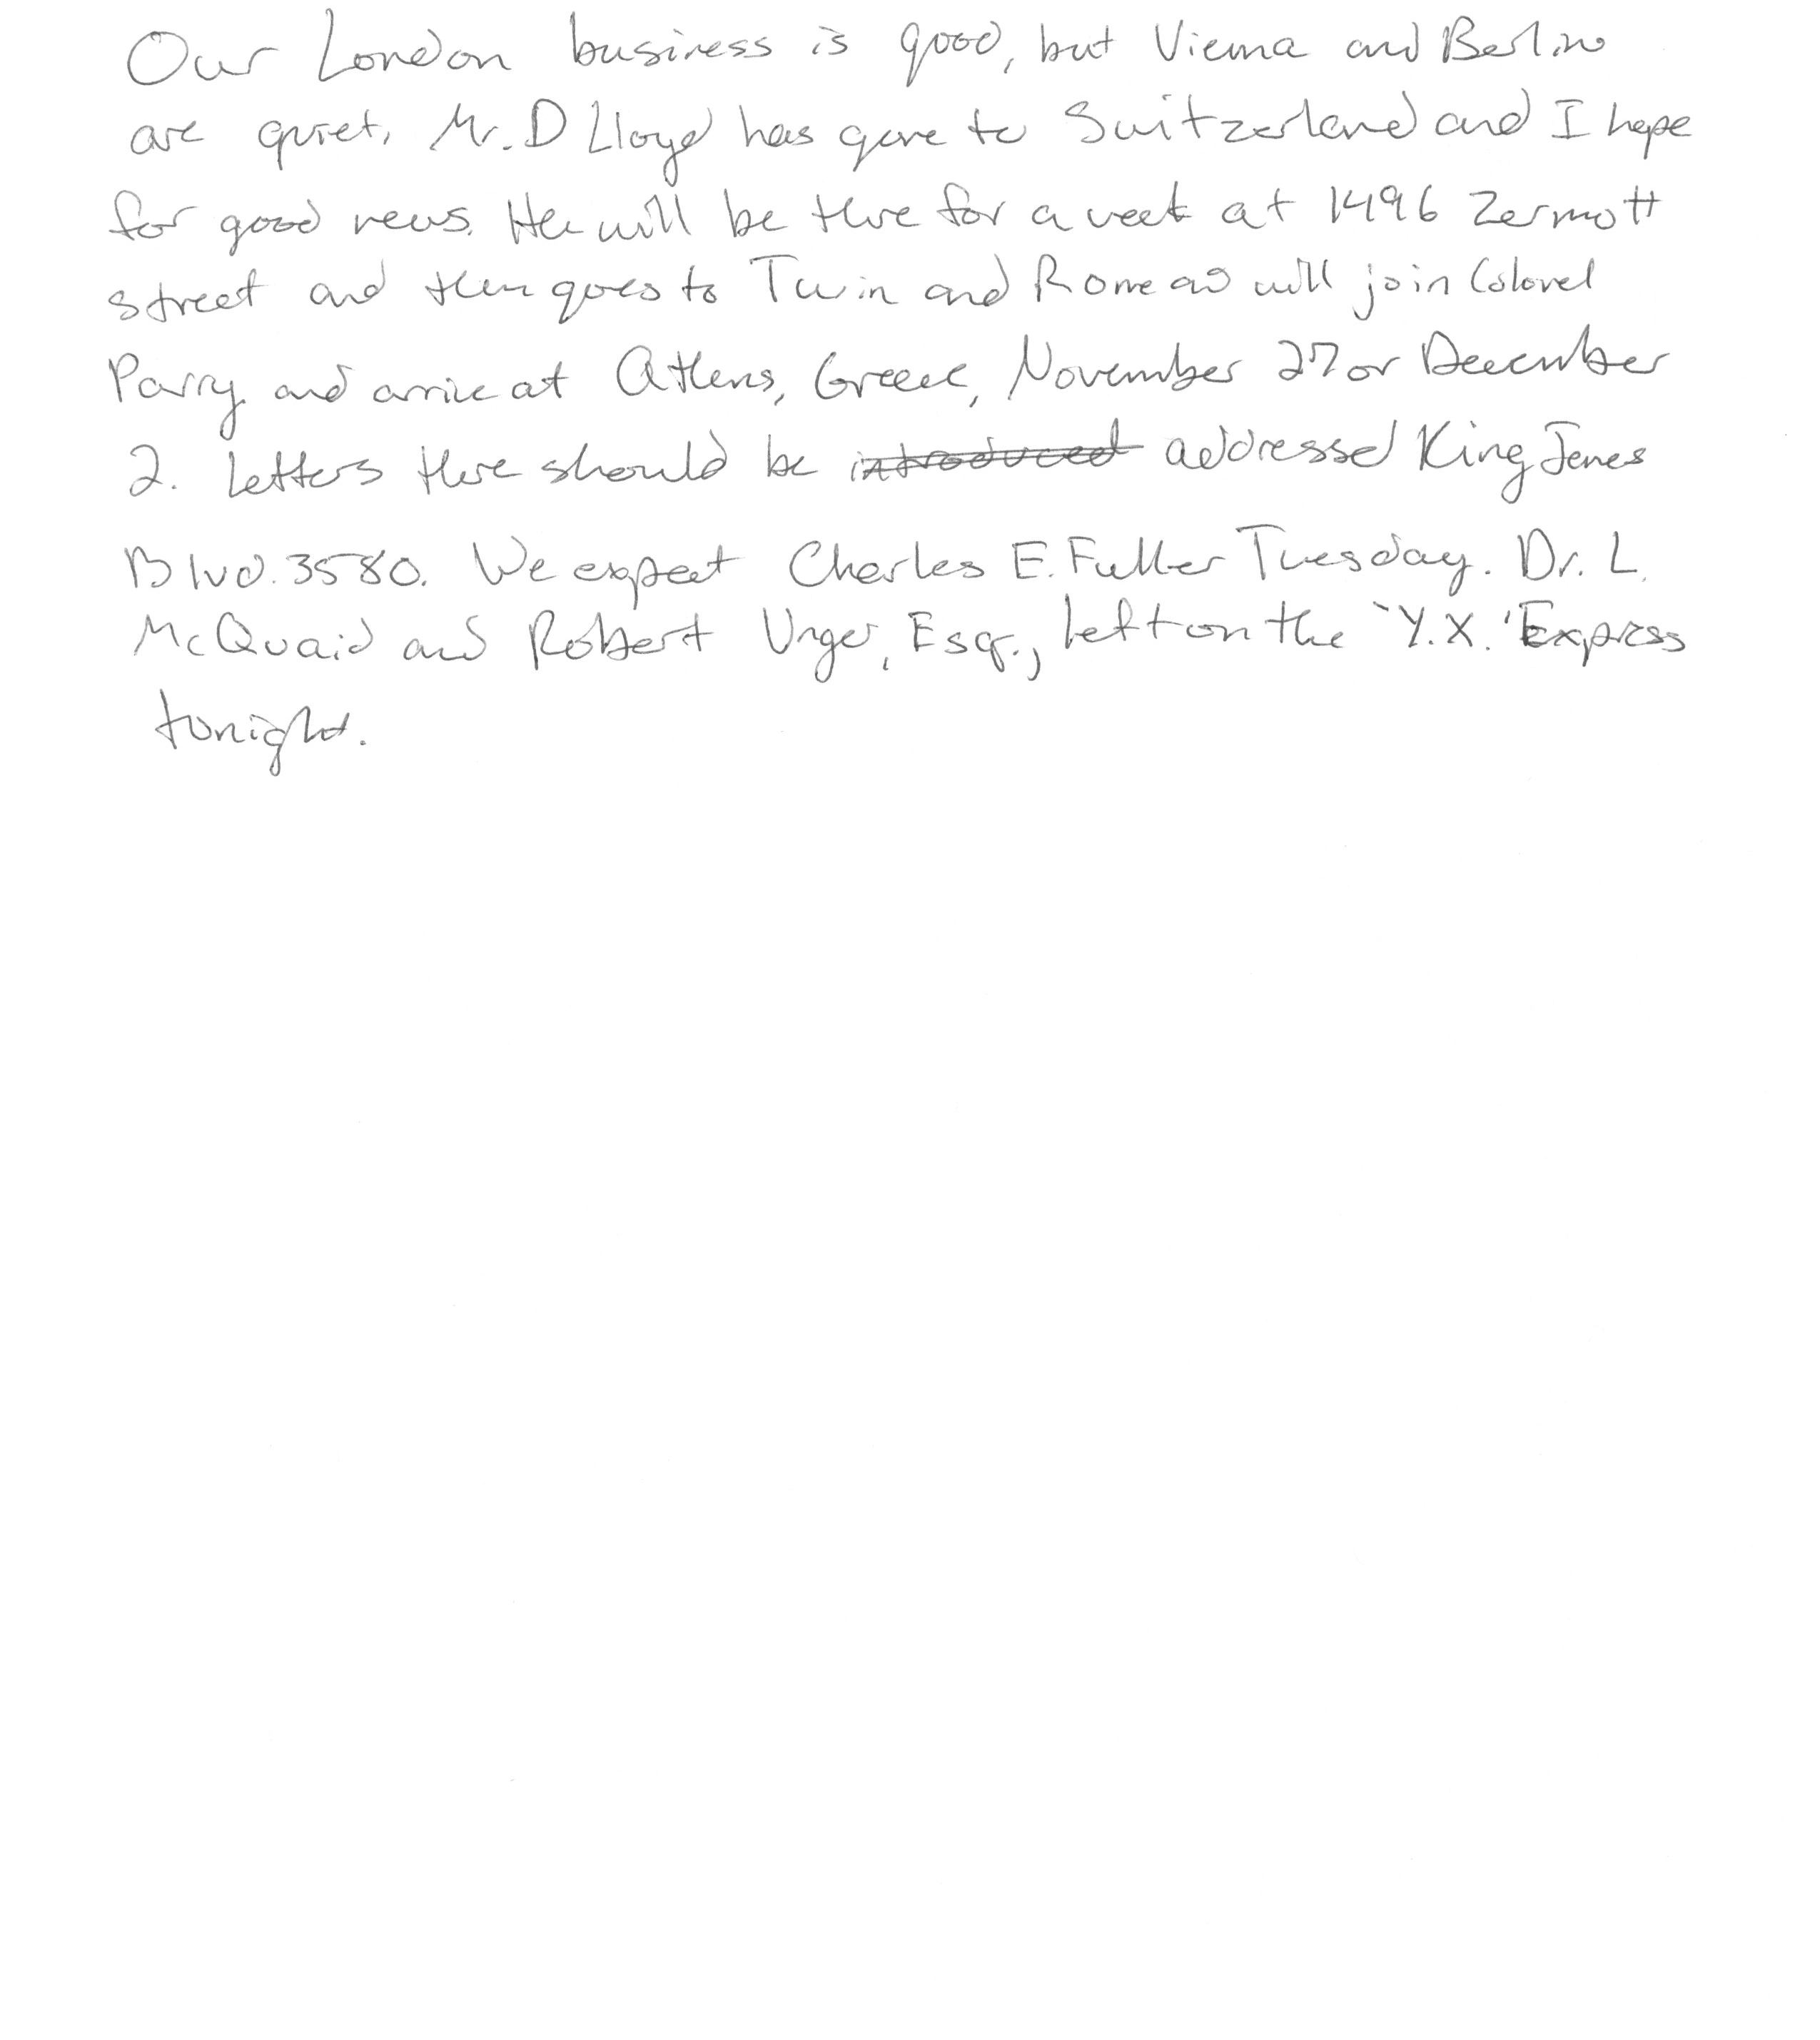 Our London business is good, but Vienna and Berlin
are quiet. Mr. D Lloyd has gone to Switzerland and I hope
for good news. He will be there for a week at 1496 Zermott
street and then goes to Turin and Rome and will join Colonel
Parry and arrive at Athens, Greece, November 27 or December
2. Letters there should be introduced addressed King James
Blvd. 3580. We expect Charles E. Fuller Tuesday. Dr. L.
McQuaid and Robert Unger, Esq., left on the 'Y.X.' Express
tonight.